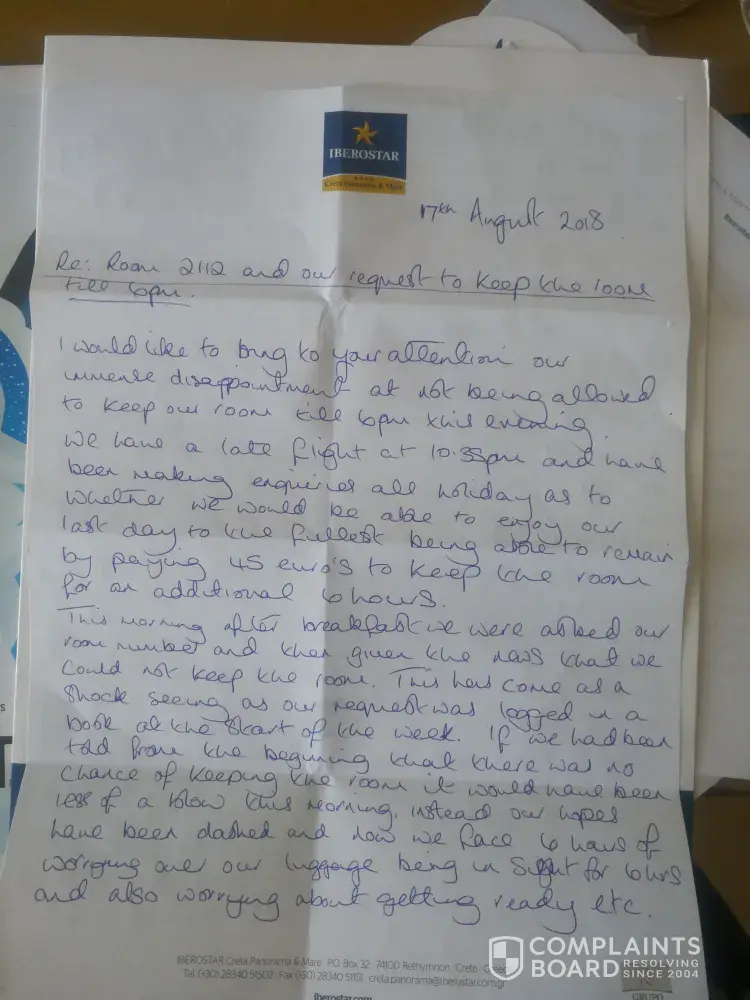 IBEROSTAR
Creta Panorama & Mare
17th August 2018
Re: Room 2112 and our request to keep the room
till 6pm.
I would like to bring to your attention our
immense disappointment at not being allowed
to keep our room till 6pm this evening.
We have a late flight at 10.35pm and have
been making enquiries all holiday as to
whether we would be able to enjoy our
last day to the fullest being able to remain
by paying 45 euro's to keep the room
for an additional 6 hours.
This morning after breakfast we were asked our
room number and then given the news that we
could not keep the room. This has come as a
shock seeing as our request was logged in a
book at the start of the week. If we had been
told from the beginning that there was no
chance of keeping the room it would have been
less of a blow this morning, instead our hopes
have been dashed and now we face 6 hours of
worrying over our luggage being in sight for 6hrs
and also worrying about getting ready etc.
IBEROSTAR Creta Panorama & Mare P.O. Box 32 74100 Rethymnon Creta
Tel (+30) 28340 51502 Fax (+30) 28340 51151 creta.panorama@iberostar.com.gr
iberostar.com
GRUPO
COMPLAINTS
BOARD
RESOLVING
SINCE 2004